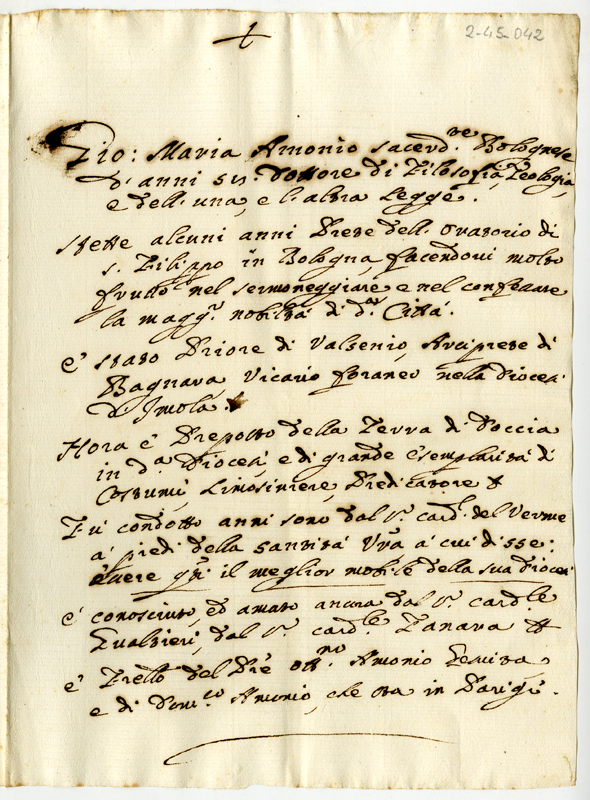 2-45-042
Gio: Maria Amonio sacerd.te Bolognese
d'anni 51: Dottore di Filosofia, Teologia,
e dell'una, e l'altra Legge.
Stette alcuni anni Prete dell'Oratorio di
S. Filippo in Bologna, facendovi molto
frutto nel sermoneggiare e nel confessare
la magg.r nobiltà di d.a Città.
è stato Priore di Valsenio, Arciprete di
Bagnara, Vicario foraneo nella Diocesi
d'Imola.
Hora è Preposto della Terra di Doccia
in d.a Diocesi, e di grande esemplarità di
Costumi, Limosiniere, Predicatore &
Fu condotto anni sono dal S.r Card.l del Verme
a' piedi della Santità V̄ra a cui disse:
essere q̄sti il meglior mobile della sua Diocesi
è conosciuto, ed amato ancora dal S.r Card.le
Gualtieri, dal S.r Card.le Tanara &
è Fr̄ello del P̄re Amonio Gesuita
e di Dom.co Amonio, che sta in Parigi.